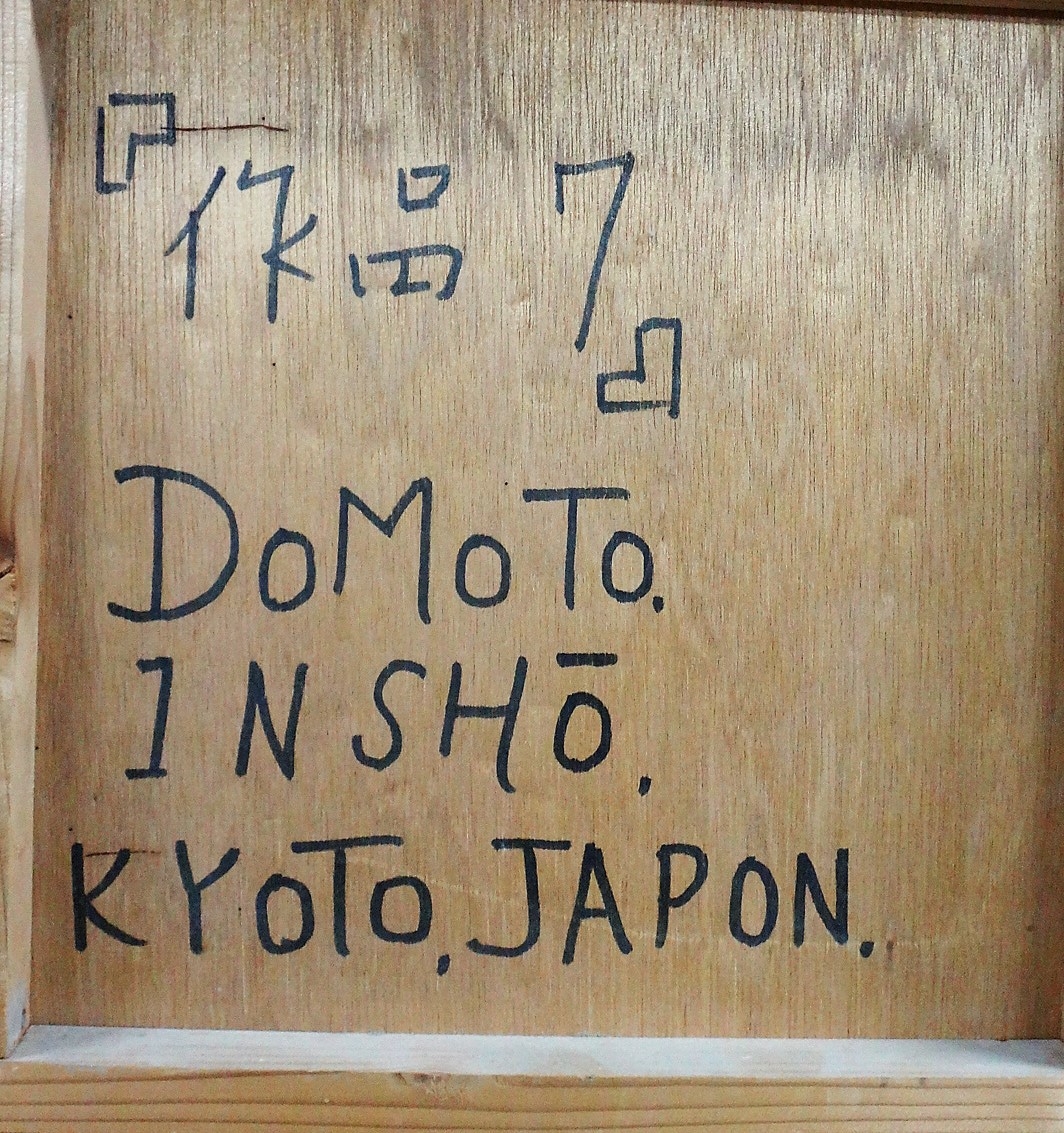 『作品 7』
DOMOTO.
INSHŌ,
KYOTO, JAPON.